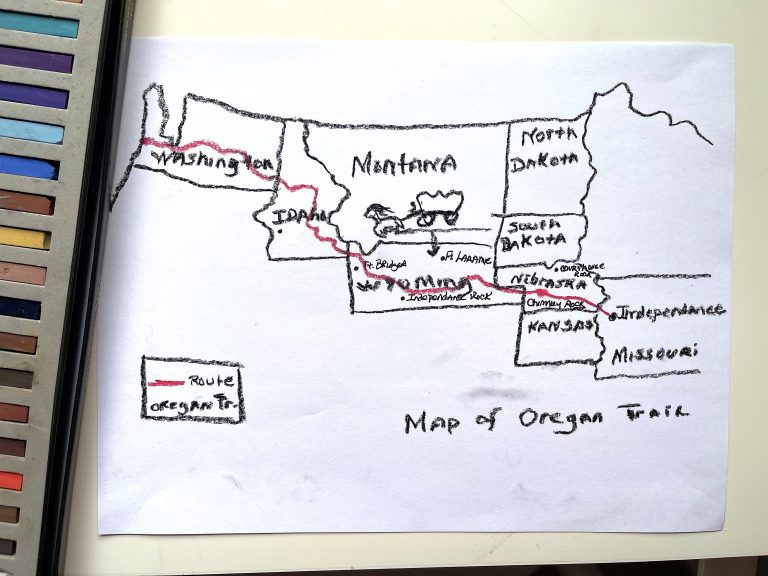 Washington
IDAHO
MONTANA
NORTH
DAKOTA
SOUTH
DAKOTA
Ft. LARAMIE
Ft. Bridger
WYOMING
Independance Rock
NEBRASKA
Chimney Rock
KANSAS
Independance
MISSOURI
Route
OREGAN Tr.
Map of Oregan Trail